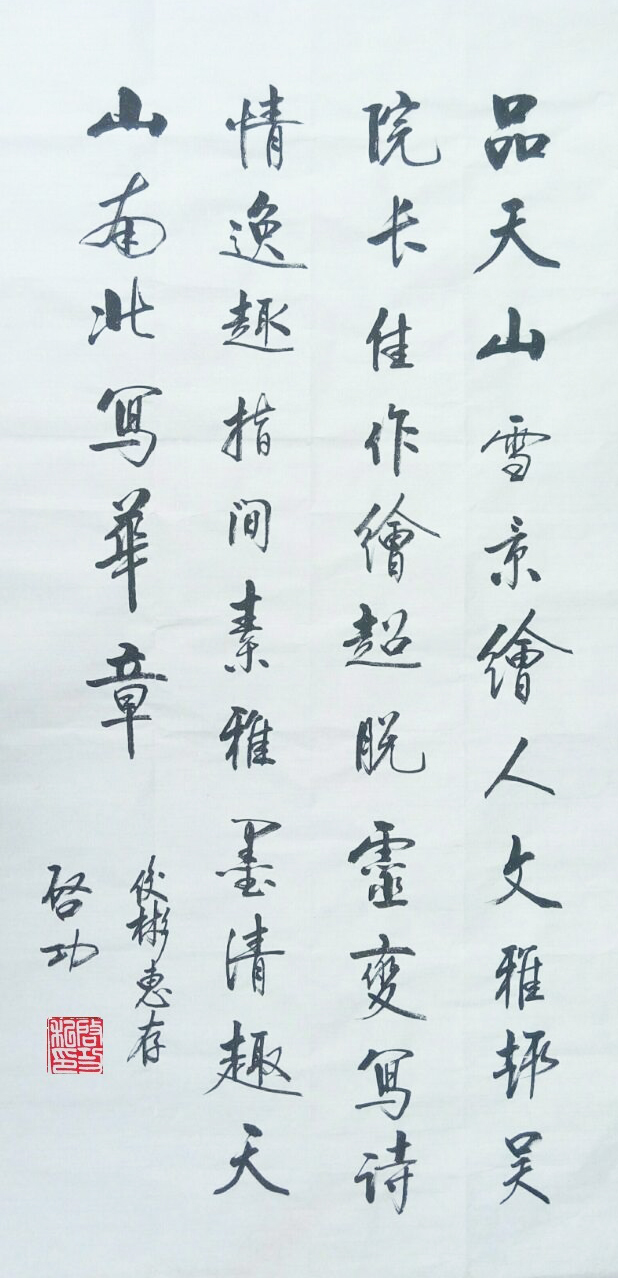 品天山雪景繪人文雅趣吴
院长佳作繪超脱靈变写诗
情逸趣指间素雅墨清趣天
山南北写華章
俊彬惠存
啓功